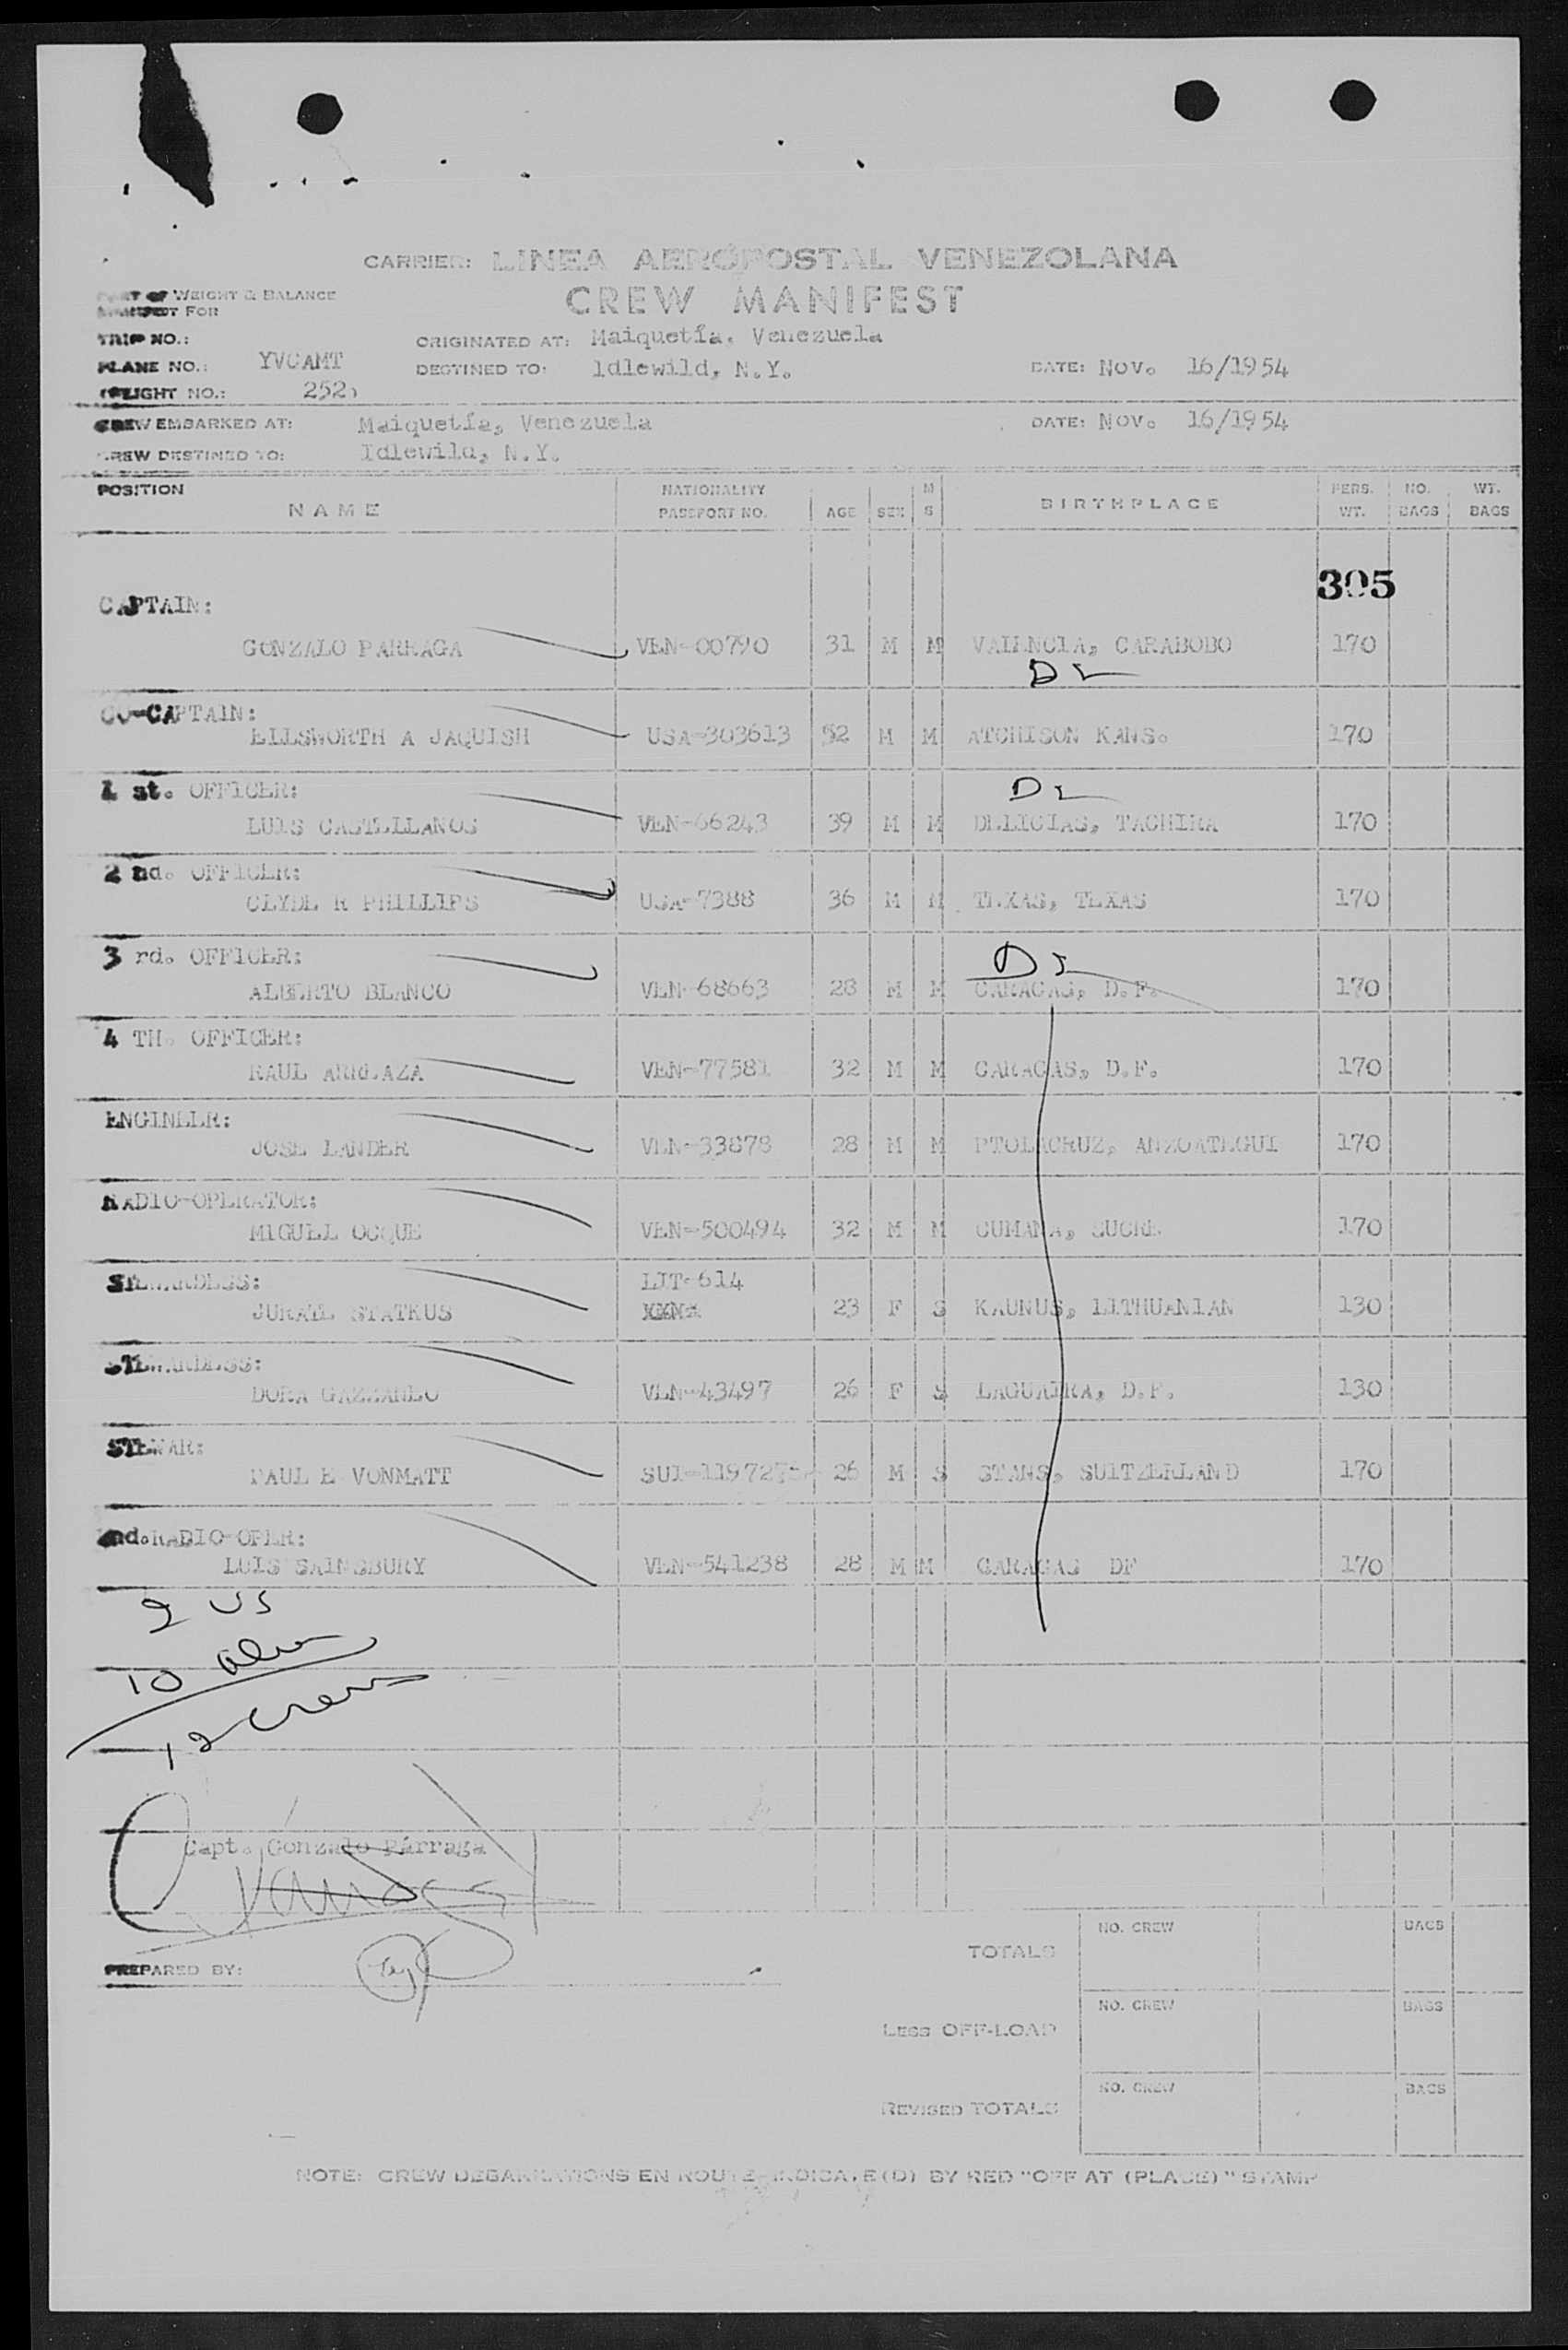 CARRIER: LINEA AEROPOSTAL VENEZOLANA
PART OF WEIGHT & BALANCE
MANIFEST FOR
CREW MANIFEST
TRIP NO.:
ORIGINATED AT: Maiquetía, Venezuela
PLANE NO.: YVCAMT
DESTINED TO: Idlewild, N.Y.
DATE: Nov. 16/1954
FLIGHT NO.: 252
CREW EMBARKED AT: Maiquetía, Venezuela
DATE: Nov. 16/1954
CREW DESTINED TO: Idlewild, N.Y.
POSITION NAME NATIONALITY PASSPORT NO. AGE SEX M S BIRTHPLACE PERS. WT. NO. BAGS WT. BAGS
305
CAPTAIN:
GONZALO PARRAGA VEN-00790 31 M M VALENCIA, CARABOBO 170
DL
CO-CAPTAIN:
ELLSWORTH A JAQUISH USA-303613 52 M M ATCHISON KANS. 170
1 st. OFFICER:
DL
LUIS CASTELLANOS VEN-66243 39 M M DELICIAS, TACHIRA 170
2 nd. OFFICER:
CLYDE R PHILLIPS USA-7388 36 M M TEXAS, TEXAS 170
3 rd. OFFICER:
DL
ALBERTO BLANCO VEN-68663 28 M M CARACAS, D.F. 170
4 TH. OFFICER:
RAUL VEN-77581 32 M M CARACAS, D.F. 170
ENGINEER:
JOSE LANDER VEN-33878 28 M M PTOLACRUZ, ANZOATEGUI 170
RADIO-OPERATOR:
MIGUEL OCQUE VEN-500494 32 M M CUMANA, SUCRE 170
STEWARDESS:
LIT-614
JURATE STATKUS 23 F S KAUNUS, LITHUANIAN 130
STEWARDESS:
DORA VEN-43497 26 F S LAGUAIRA, D.F. 130
STEWAR:
PAUL E VONMATT 26 M S STANS, SUITZERLAND 170
2nd. RADIO-OPER:
LUIS SAINSBURY VEN-541238 28 M M CARACAS DF 170
2 US
10 alien
12 crew
Capt. Gonzalo Párraga
TOTALS NO. CREW BAGS
PREPARED BY:
LESS OFF-LOAD NO. CREW BAGS
REVISED TOTALS NO. CREW BAGS
NOTE: CREW DEBARKATIONS EN ROUTE INDICATE(D) BY RED "OFF AT (PLACE)" STAMP